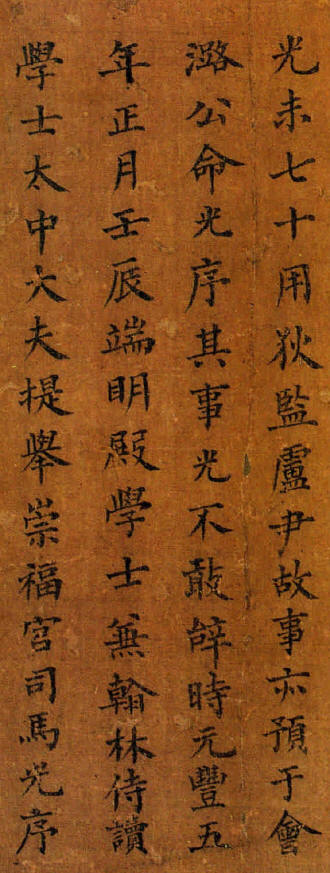 光未七十用狄監盧尹故事亦預于會
潞公命光序其事光不敢辝時元豐五
年正月壬辰端明殿學士兼翰林侍讀
學士太中大夫提舉崇福宮司馬光序